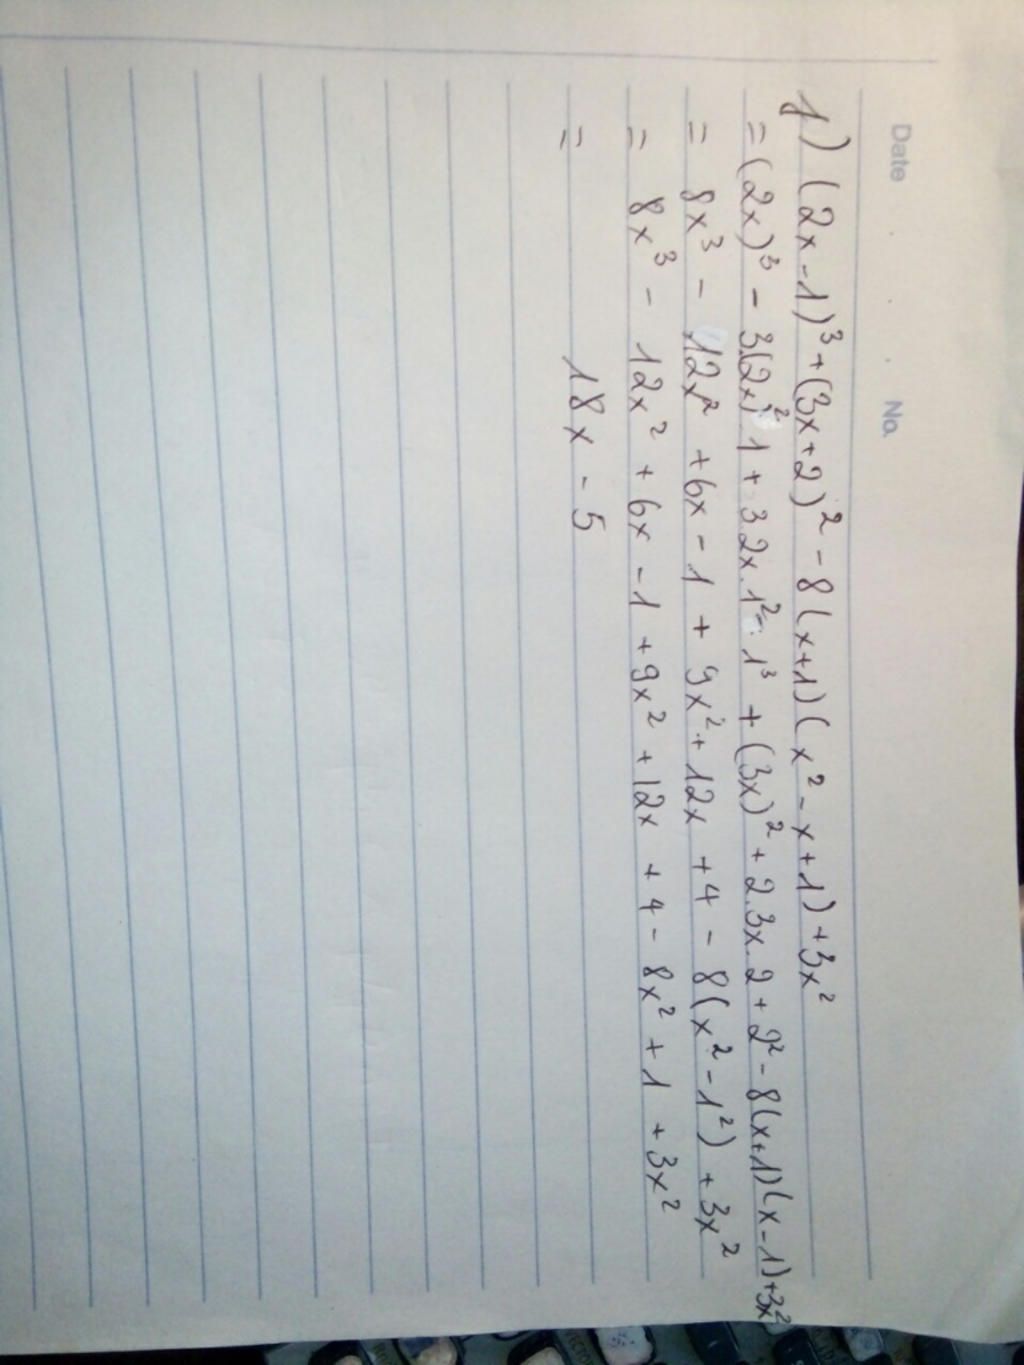 Date No.
f) (2x-1)³+(3x+2)²-8(x+1)(x²-x+1)+3x²
=(2x)³-3(2x)²1+3.2x.1²-1³+(3x)²+2.3x.2+2²-8(x+1)(x-1)+3x²
= 8x³-12x²+6x-1+9x²+12x+4-8(x²-1²)+3x²
= 8x³-12x²+6x-1+9x²+12x+4-8x²+1+3x²
= 18x-5